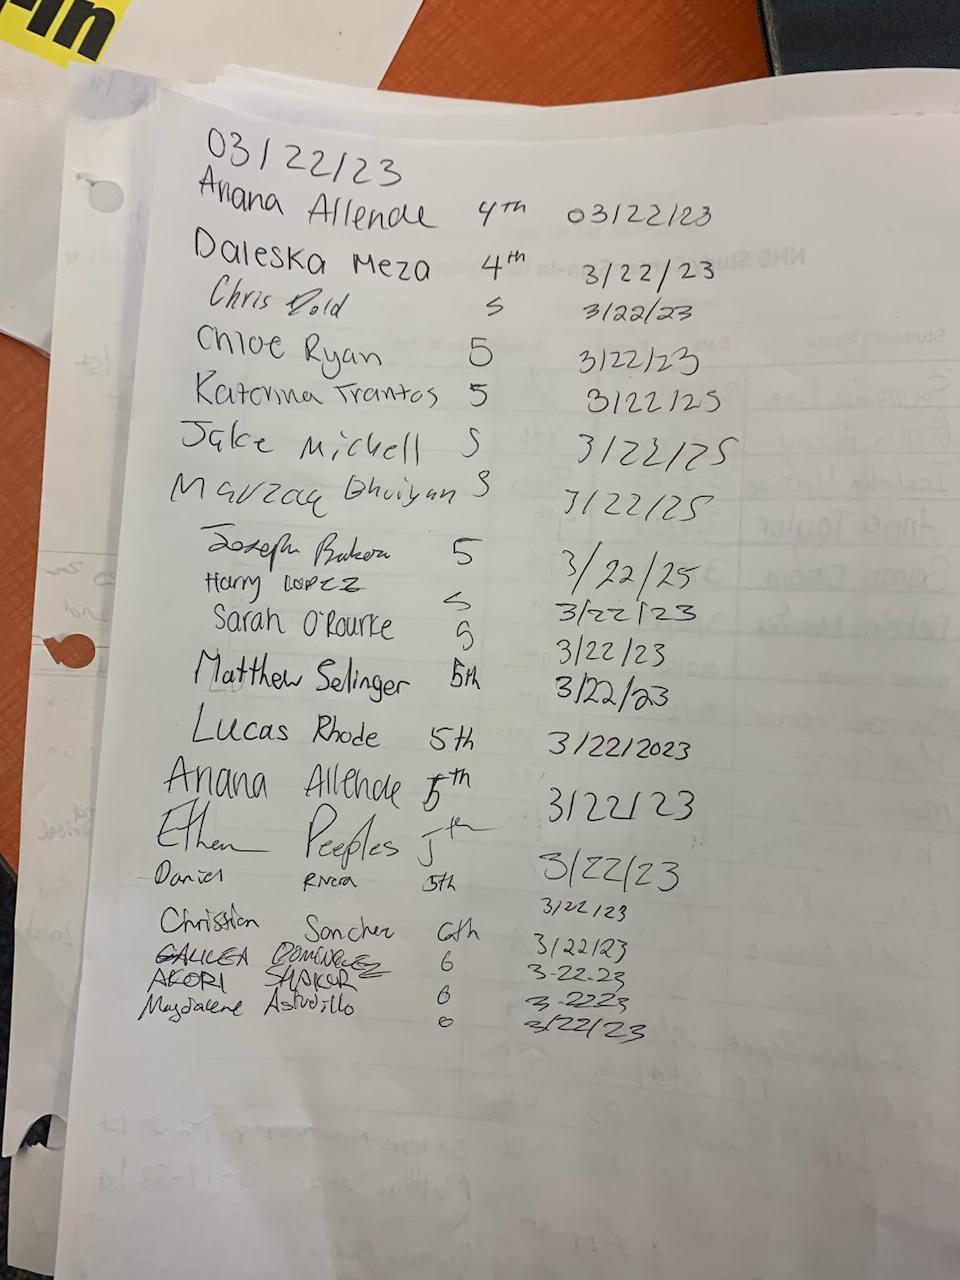 -In
03/22/23
Anana Allende 4th 03/22/23
Daleska Meza 4th 3/22/23
Chris Dold 5 3/22/23
Chloe Ryan 5 3/22/23
Katerina Trantos 5 3/22/25
Jake Mickell 5 3/22/25
Marzaq Bhuiyan 5 3/22/25
Joseph 5 3/22/25
Harry LOPEZ 5 3/22/23
Sarah O'Rourke 5 3/22/23
Matthew Selinger 5th 3/22/23
Lucas Rhode 5th 3/22/2023
Anana Allende 5th 3/22/23
Ethan Peeples 5th 3/22/23
Daniel Rivera 5th 3/22/23
Christian Sanchez 6th 3/22/23
GALILEA 6 3-22-23
AKORI SHAKUR 6 3-2223
Magdalene Astudillo 6 3/22/23